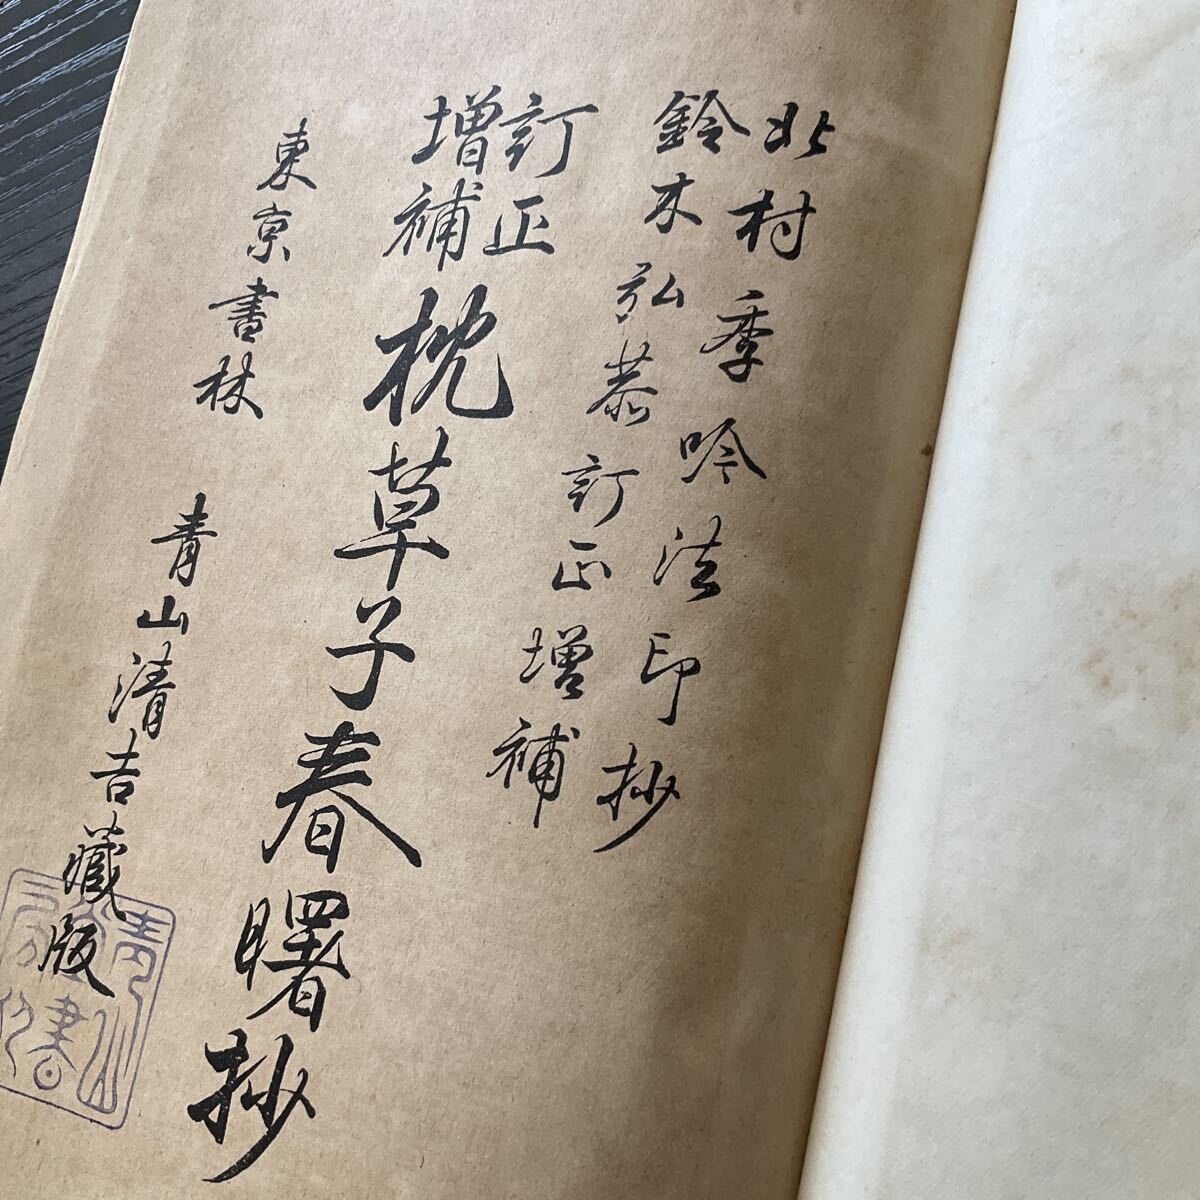 北村季吟法印抄
鈴木弘恭訂正増補
訂正
増補
枕草子春曙抄
東京書林 青山清吉藏版